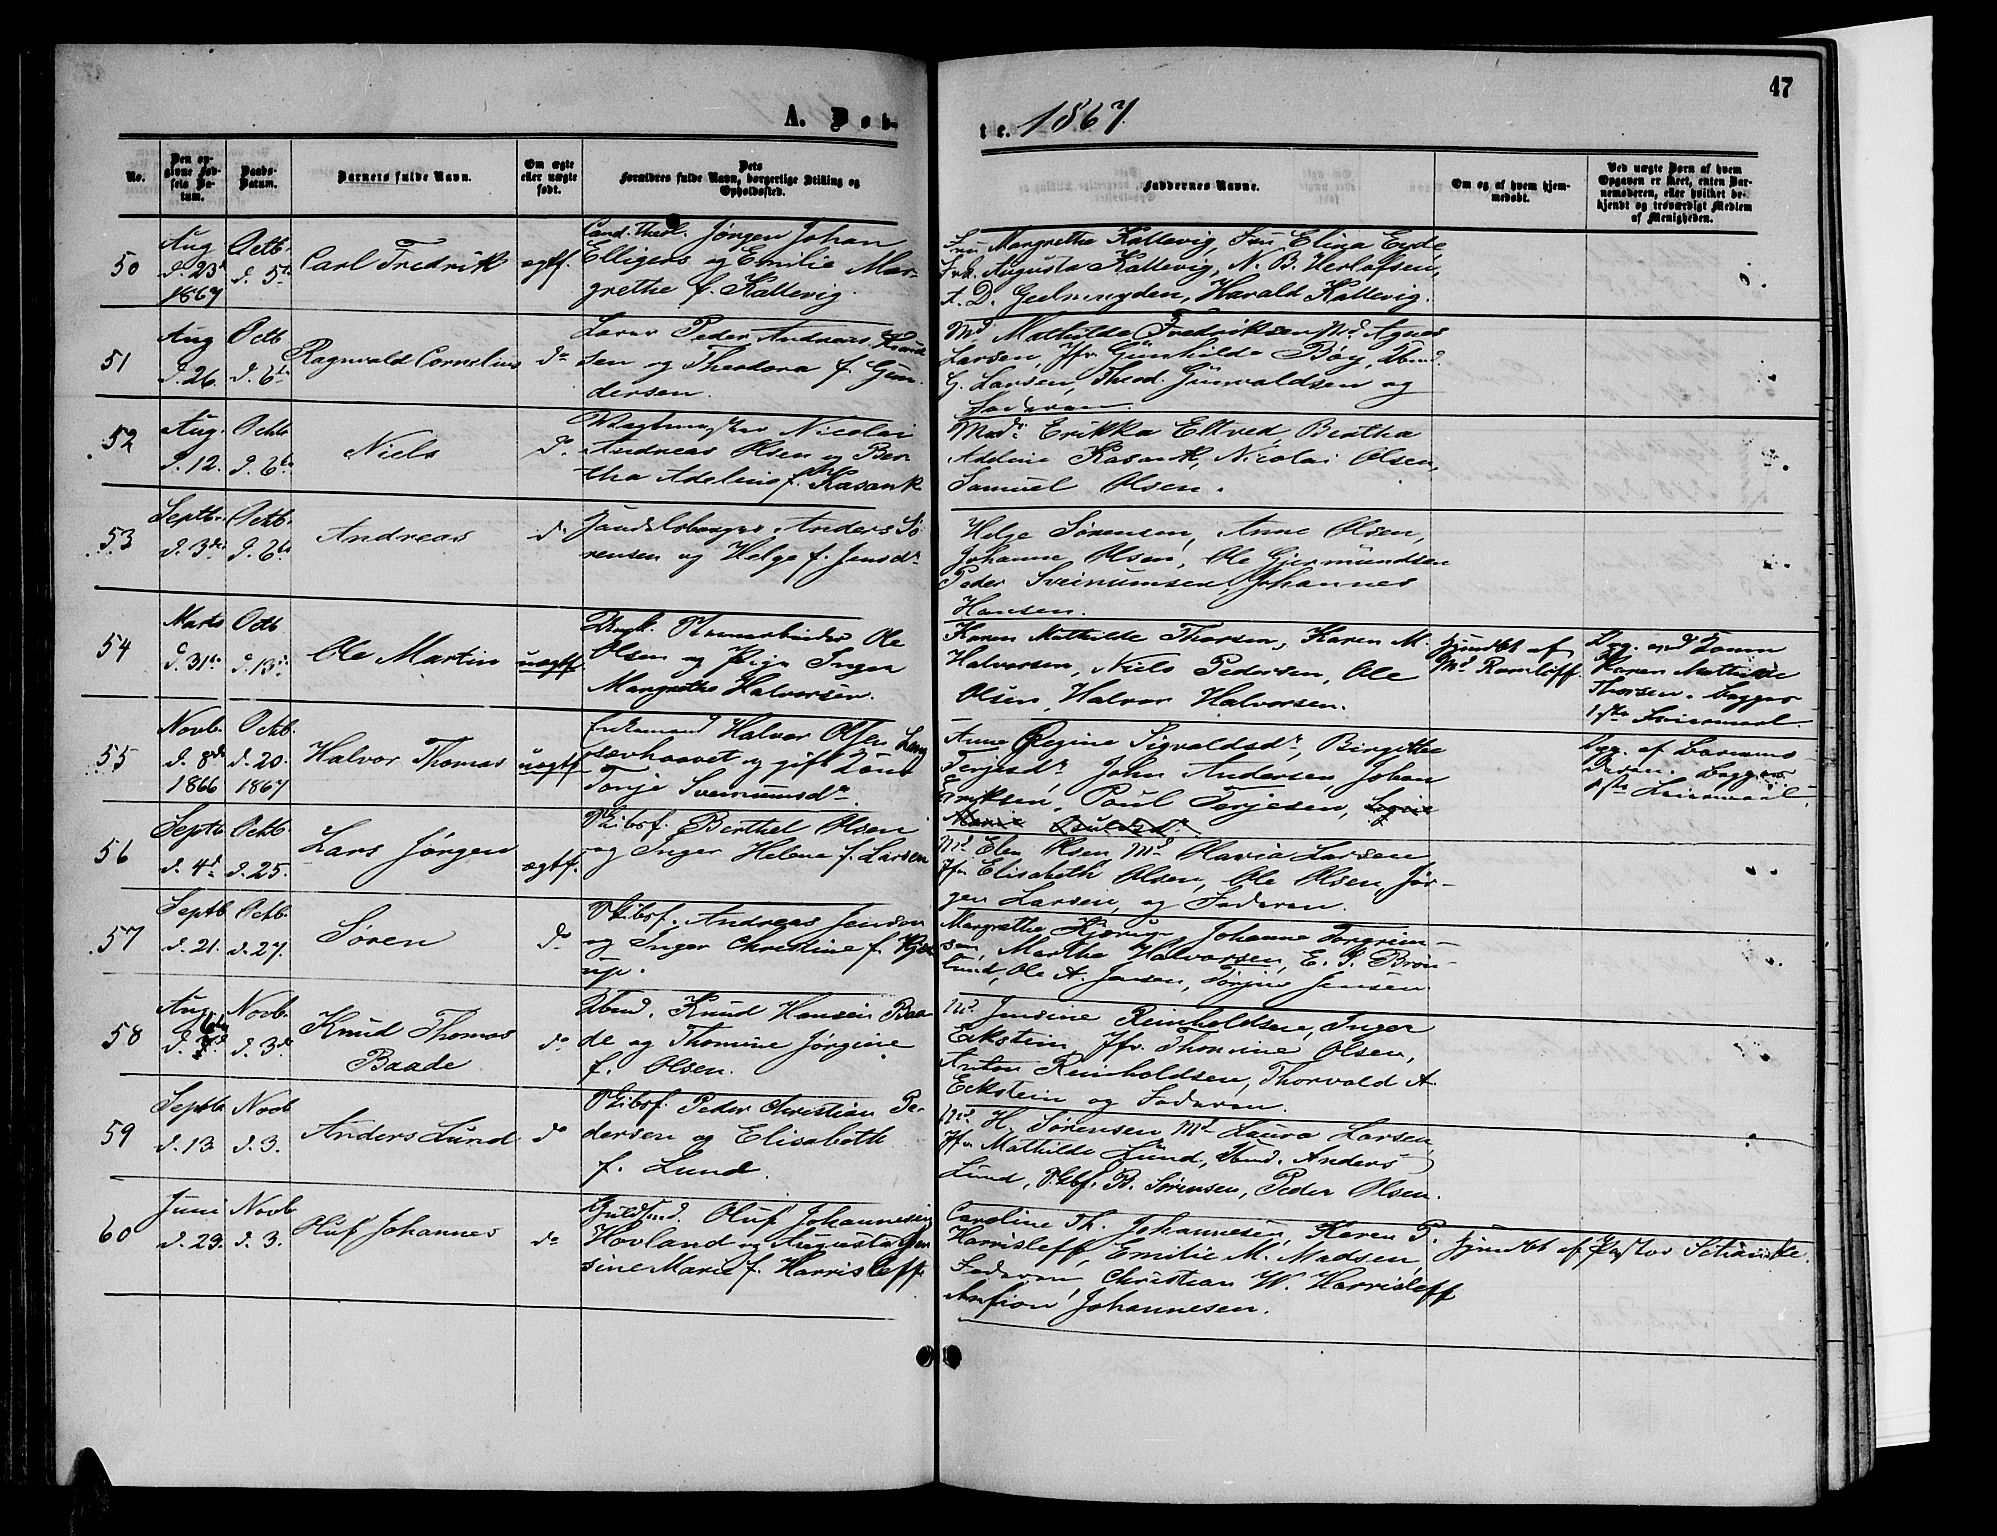 47
A. Døb-
te. 1867
No.
Den op-
givne Fød-
sels Da-
tum.
Daabs-
Datum.
Barnets fulde Navn.
Om ægte
eller uægte
født.
Dets
Forældres fulde Navn, borgerlige Stilling og
Opholdssted.
Faddernes Navne.
Om og af hvem hjem-
medøbt.
Ved uægte Børn af hvem
Opgaven er skeet, enten Bar-
nemoderen, eller hvilket be-
kjendt og troværdigt Medlem
af Menigheden.
50
Aug
d. 23d
1867
Octb
d. 5te
Carl Fredrik
ægtf.
Cand. Theol. Jørgen Johan
Elligers og Emilie Mar-
grethe f. Kallevig.
Fru Margrethe Kallevig, Fru Eliza Eyde
Frk. Augusta Kallevig, N. B. Herlofsen,
A. D. Geelmuyden, Harald Kallevig.
51
Aug
d. 26.
Octb
d. 6te
Ragnvald Cornelius
do
Lærer Peder Andreas Knud
sen og Theodora f. Gun-
dersen.
Md Mathilde Fredriksen Md Agnes
Larsen, Jfr. Günhilde Bøy, Tbmd.
G. Larsen, Theod. Günvaldsen og
Faderen.
52
Aug.
d. 12.
Octb
d. 6te
Niels
do
Nicolai
Andreas Olsen og Ber-
tha Adeline f. Kasank
Mad. Erikka Eltved, Bertha
Adeline Kasank, Nicolai Olsen,
Samuel Olsen.
53
Septb.
d. 3die
Octb.
d. 6te
Andreas
do
Jandalsborger Anders Sø-
rensen og Helge f. Jensdr
Helge Sørensen, Anne Olsen,
Johanne Olsen, Ole Gjermundsen
Peder Sveinumsen, Johannes
Hansen.
54
Marts
d. 31te
Octb
d. 13de
Ole Martin
uægtf
Ole
Olsen og Pige Inger
Margrethe Halvorsen.
Karen Mathilde Thorsen, Karen M.
Halvorsen, Niels Pedersen, Ole
Olsen, Halvor Halvorsen.
Hjemdbt af
Md Romlöff.
Opg. ved Jomfr
Karen Mathilde
Thorsen. Begges
1ste Leiermaal.
55
Novb.
d. 8de
1866
Octb.
d. 20.
1867
Halvor Thomas
uægtf
Enkemand Halvor Olsen Lang
sævhaavet og gift Kone
Tonje Sveinumsdr
Anne Regine Sigvaldsdr, Birgitte
Terjesdr, John Andersen, Johan
Eriksen, Poul Terjesen,
Opg. af Barnets
Begges
1ste Leiermaal,
56
Septb
d. 4d
Octb
d. 25.
Lars Jørgen
ægtf.
Skibsf. Berthel Olsen
og Inger Helene f. Larsen
Md. Elen Olsen Md Olavia Larsen
Jfr. Elisabeth Olsen, Ole Olsen, Jør-
gen Larsen, og Faderen.
57
Septb
d. 21.
Octb.
d. 27.
Søren
do
Skibsf. Andreas Jensen
og Inger Christine f. Hjer
up.
Margrethe Hjerup, Johanne Torgrim-
sen, Marthe Halvorsen, E. G. Brøn-
lund, Ole A. Jensen, Tørjus Jensen
58
Aug.
Novb.
d. 3de
Knud Thomas
Baade
do
Tbmd. Knud Hansen Baa-
de og Thomine Jørgine
f. Olsen.
Md. Jensine Reinholdsen, Inger
Eckstein, Jfr. Thomine Olsen,
Anton Reinholdsen, Thorvald A.
Eckstein og Faderen.
59
Septb
d. 13
Novb
d. 3.
Anders Lund
do
Skibsf. Peder Christian Pe-
dersen og Elisabeth
f. Lund.
Md. H. Sørensen Md Laura Larsen
Jfr. Mathilde Lünd, Tbmd. Anders
Lund, Skbf. B. Sørensen, Peder Olsen.
60
Juni
d. 29.
Novb
d. 3.
Oluf Johannes
do
Guldsmd. Oluf Johannesen
Hovland og Augusta Jen
sine Marie f. Harrisleff.
Caroline Th. Johannesen, Karen P.
Harrisleff, Emilie M. Madsen,
Faderen, Christian W. Harrisleff
Anfion Johannesen.
Hjemdbt af Pastor Schanke.